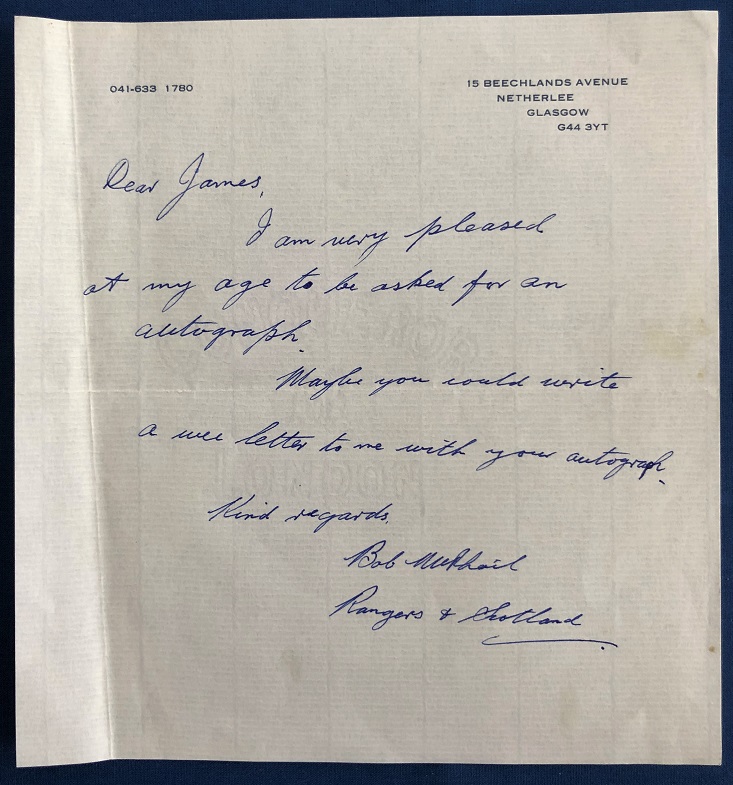 041-633 1780
15 BEECHLANDS AVENUE
NETHERLEE
GLASGOW
G44 3YT
Dear James,
I am very pleased
at my age to be asked for an
autograph.
Maybe you could write
a wee letter to me with your autograph.
Kind regards.
Bob McPhail
Rangers & Scotland